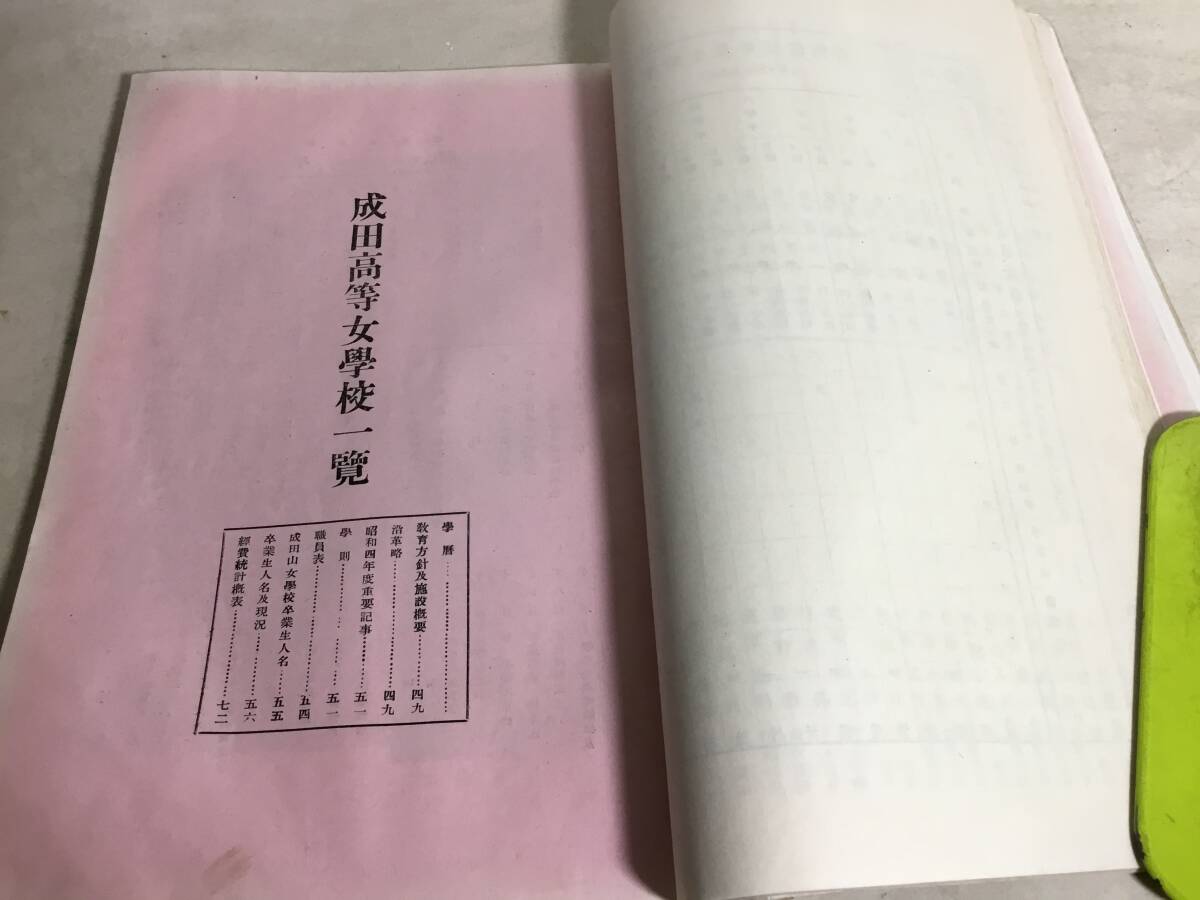 成田高等女學校一覽
學曆……………………
教育方針及施設概要………四九
沿革略……………………四九
昭和四年度重要記事………五一
學則……………………五一
職員表……………………五四
成田山女學校卒業生人名……五五
卒業生人名及現況…………五六
經費統計概表………………七二